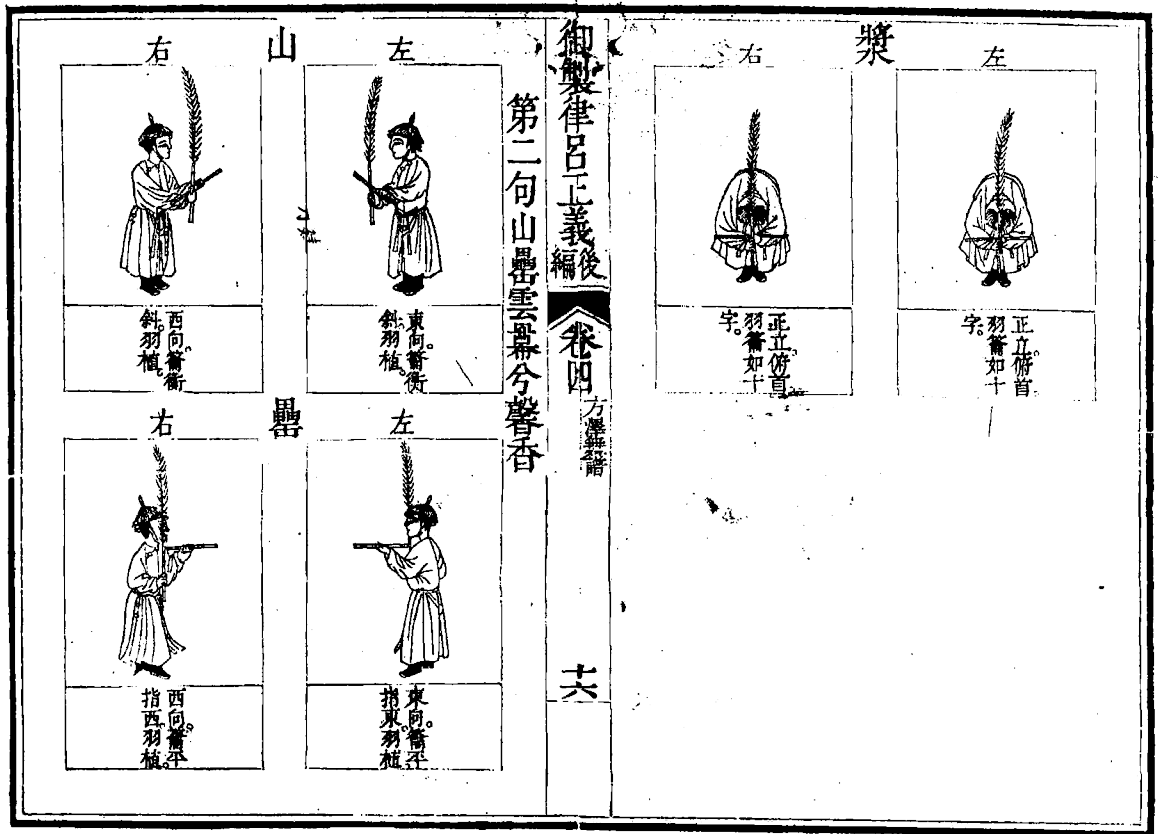 漿
左
正立。俯首
羽籥如十
字。
右
正立。俯首
羽籥如十
字。
御製律呂正義後編
卷四
方澤舞譜
十六
第二句山罍雲冪兮馨香
山
左
東向。籥衡
斜。羽植。
右
西向。籥衡
斜。羽植。
罍
左
東向。籥平
指東。羽植。
右
西向。籥平
指西。羽植。